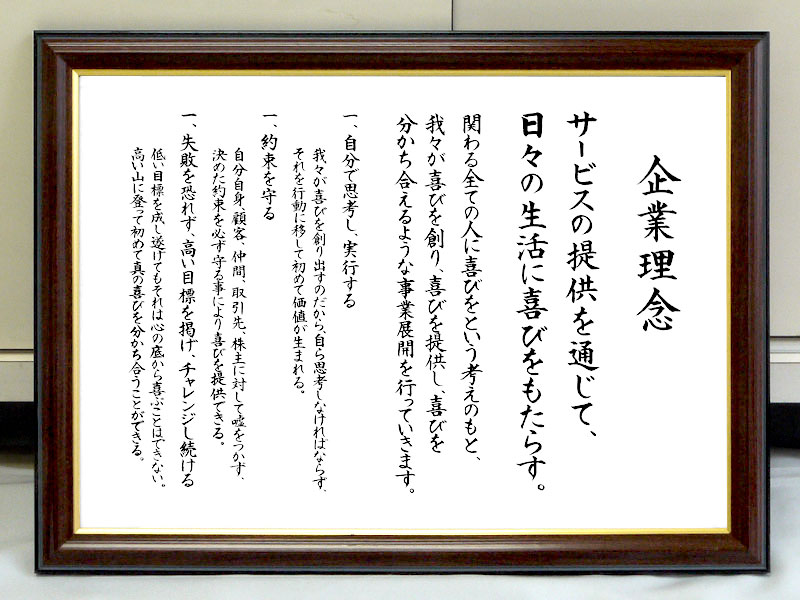 企業理念
サービスの提供を通じて、
日々の生活に喜びをもたらす。
関わる全ての人に喜びをという考えのもと、
我々が喜びを創り、喜びを提供し、喜びを
分かち合えるような事業展開を行っていきます。
一、自分で思考し、実行する
我々が喜びを創り出すのだから、自ら思考しなければならず、
それを行動に移して初めて価値が生まれる。
一、約束を守る
自分自身、顧客、仲間、取引先、株主に対して嘘をつかず、
決めた約束を必ず守る事により喜びを提供できる。
一、失敗を恐れず、高い目標を掲げ、チャレンジし続ける
低い目標を成し遂げてもそれは心の底から喜ぶことはできない。
高い山に登って初めて真の喜びを分かち合うことができる。